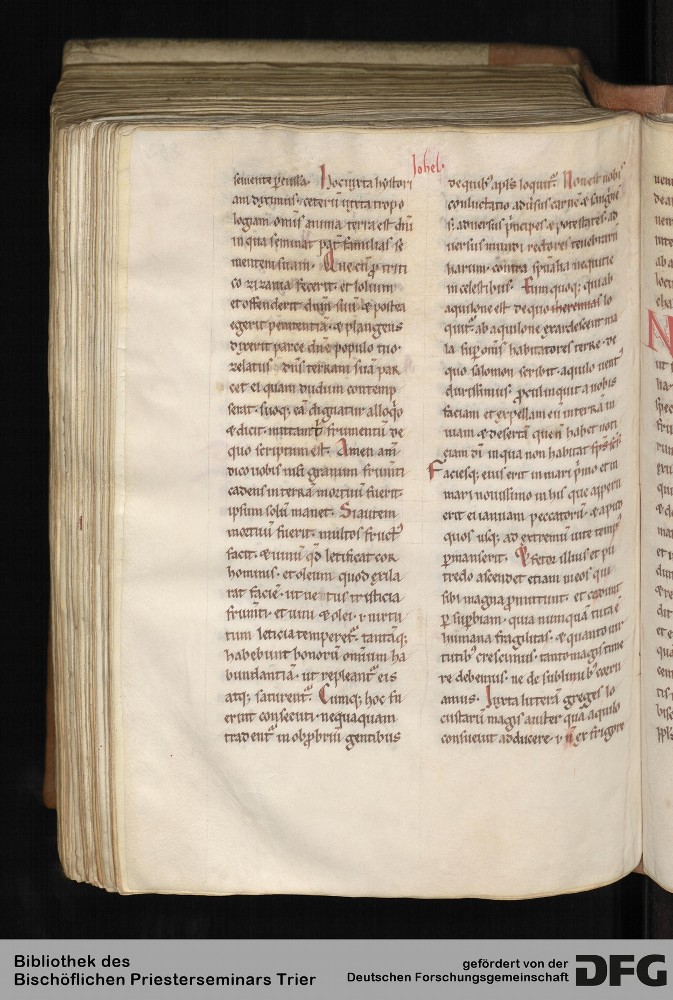 Iohel.
semente pcussa. Hoc iuxta hystori
am diximus. ceterū iuxta tropo
logiam omīs anima terra est dn̄i
in qua seminat pat̄ familias se
mentem suam. Que cū p triti
co zizania fecerit. et solum
et offenderit dn̄m suū & postea
egerit penitentiā. & plangens
dixerit parce dn̄e populo tuo.
zelatus dn̄s terram suā par
cet ei quam dudum contemp
serat. suoq; eā dignatur alloq̊o
& dicit. mittam t̄ frumentū de
quo scriptum est. Amen am̄
dico uobis nisi granum frum̄ti
cadens in terrā mortuū fuerit.
ipsum solū manet. Si autem
mortuū fuerit. multos fruct᷒
facit. & uinū qd̄ letificat cor
hominis. et oleum quod exila
rat faciē. ut uetus tristicia
frum̄ti. et uini & olei. i. uirtu
tum leticia temperet᷒. tantāq;
habebunt bonorū omnium ha
bundantiā. ut repleant᷒ eis
atq; saturent᷒. Cumq; hoc fu
erint consecuti. nequaquam
tradent᷒ in obpbriū gentibus
de quib᷒ apl̄s loquit᷒. Non est nobis
conluctatio aduersus carnē & sanguinē
s; aduersus pncipes & potestates. ad
uersus mundi rectores tenebrarū
harum. contra spūalia nequitie
in celestibus. Eum quoq; qui ab
aquilone est de quo iheremias lo
quit᷒. ab aquilone exardescent ma
la sup om̄s habitatores terre. de
quo salomon scribit. aquilo uent᷒
durissimus. pcul inquit a nobis
faciam et expellam eū in terrā in
uiam & desertā quem habet noti
ciam dī in qua non habitat sp̄s sc̄s.
Faciesq; eius erit in mari pimo et in
mari nouissimo in his que apperti
erit ei ianuam peccatorū. & apud
quos usq; ad extremū uite temp᷒
pmanserit. & fetor illius et pu
tredo ascendet etiam in eos qui
sibi magna pmittunt. et cadunt
p supbiam. quia nunquā tuta ē
humana fragilitas. & quanto uir
tutib᷒ crescimus. tanto magis time
re debemus. ne de sublimib᷒ corru
amus. Iuxta litterā greges lo
custarū magis auster quā aquilo
consueuit adducere. i. n̄ ex frigore
Bibliothek des
Bischöflichen Priesterseminars Trier
gefördert von der
Deutschen Forschungsgemeinschaft
DFG